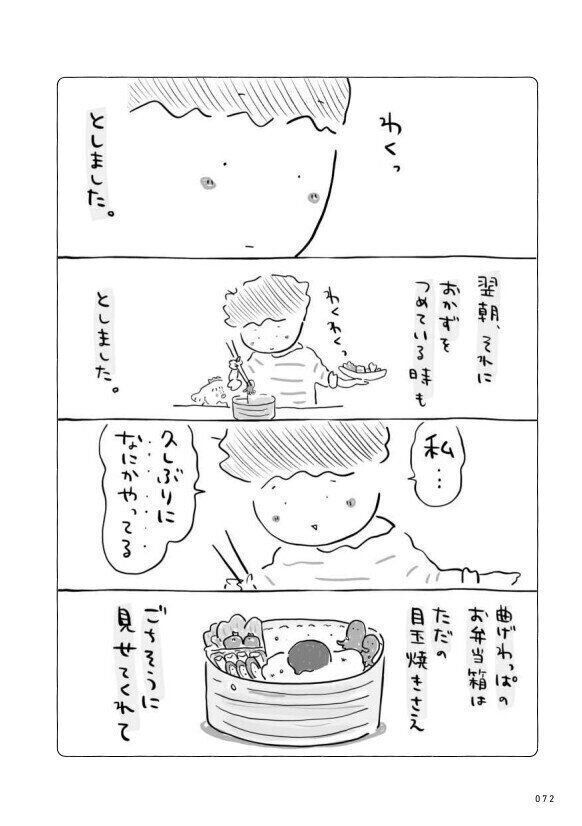 わくっ
としました。
翌朝、それに
おかずを
つめている時も
わくわくっ
としました。
私…
久しぶりに
なにかやってる
曲げわっぱの
お弁当箱は
ただの
目玉焼きさえ
ごちそうに
見せてくれて
072